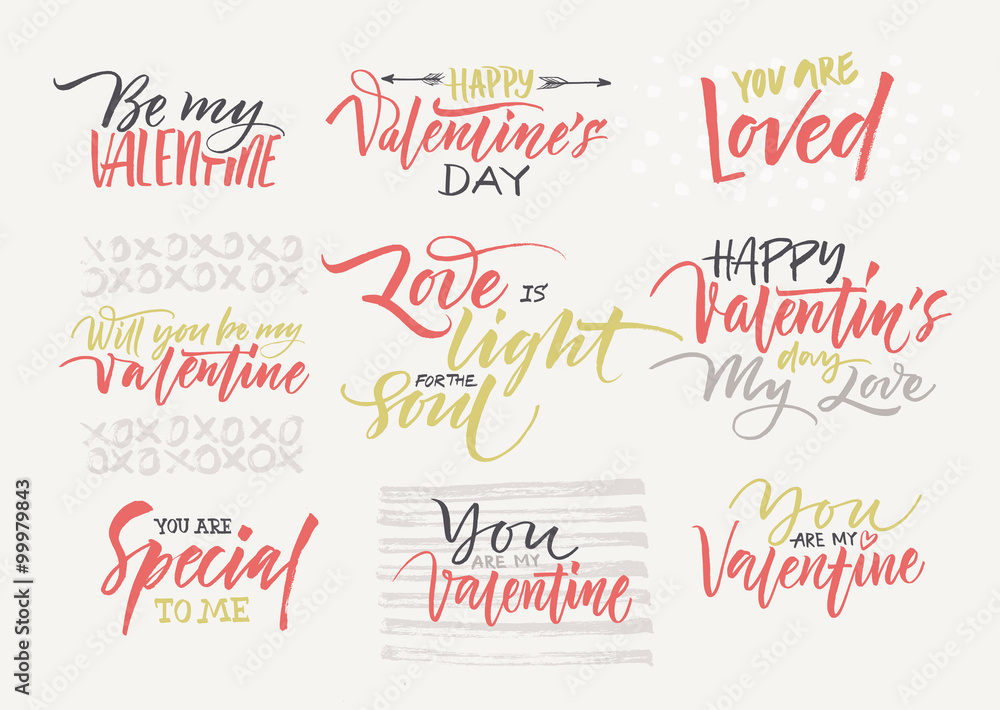 Be my
VALENTINE
HAPPY
Valentine's
DAY
YOU ARE
Loved
XOXOXOXO
OXOXOXOXO
Will you be my
Valentine
XOXOXOXO
OXOXOXOX
Love IS
light
FOR THE
Soul
HAPPY
Valentin's
day
My Love
YOU ARE
Special
TO ME
You
ARE MY
Valentine
You
ARE MY
Valentine
Adobe Stock | #99979843